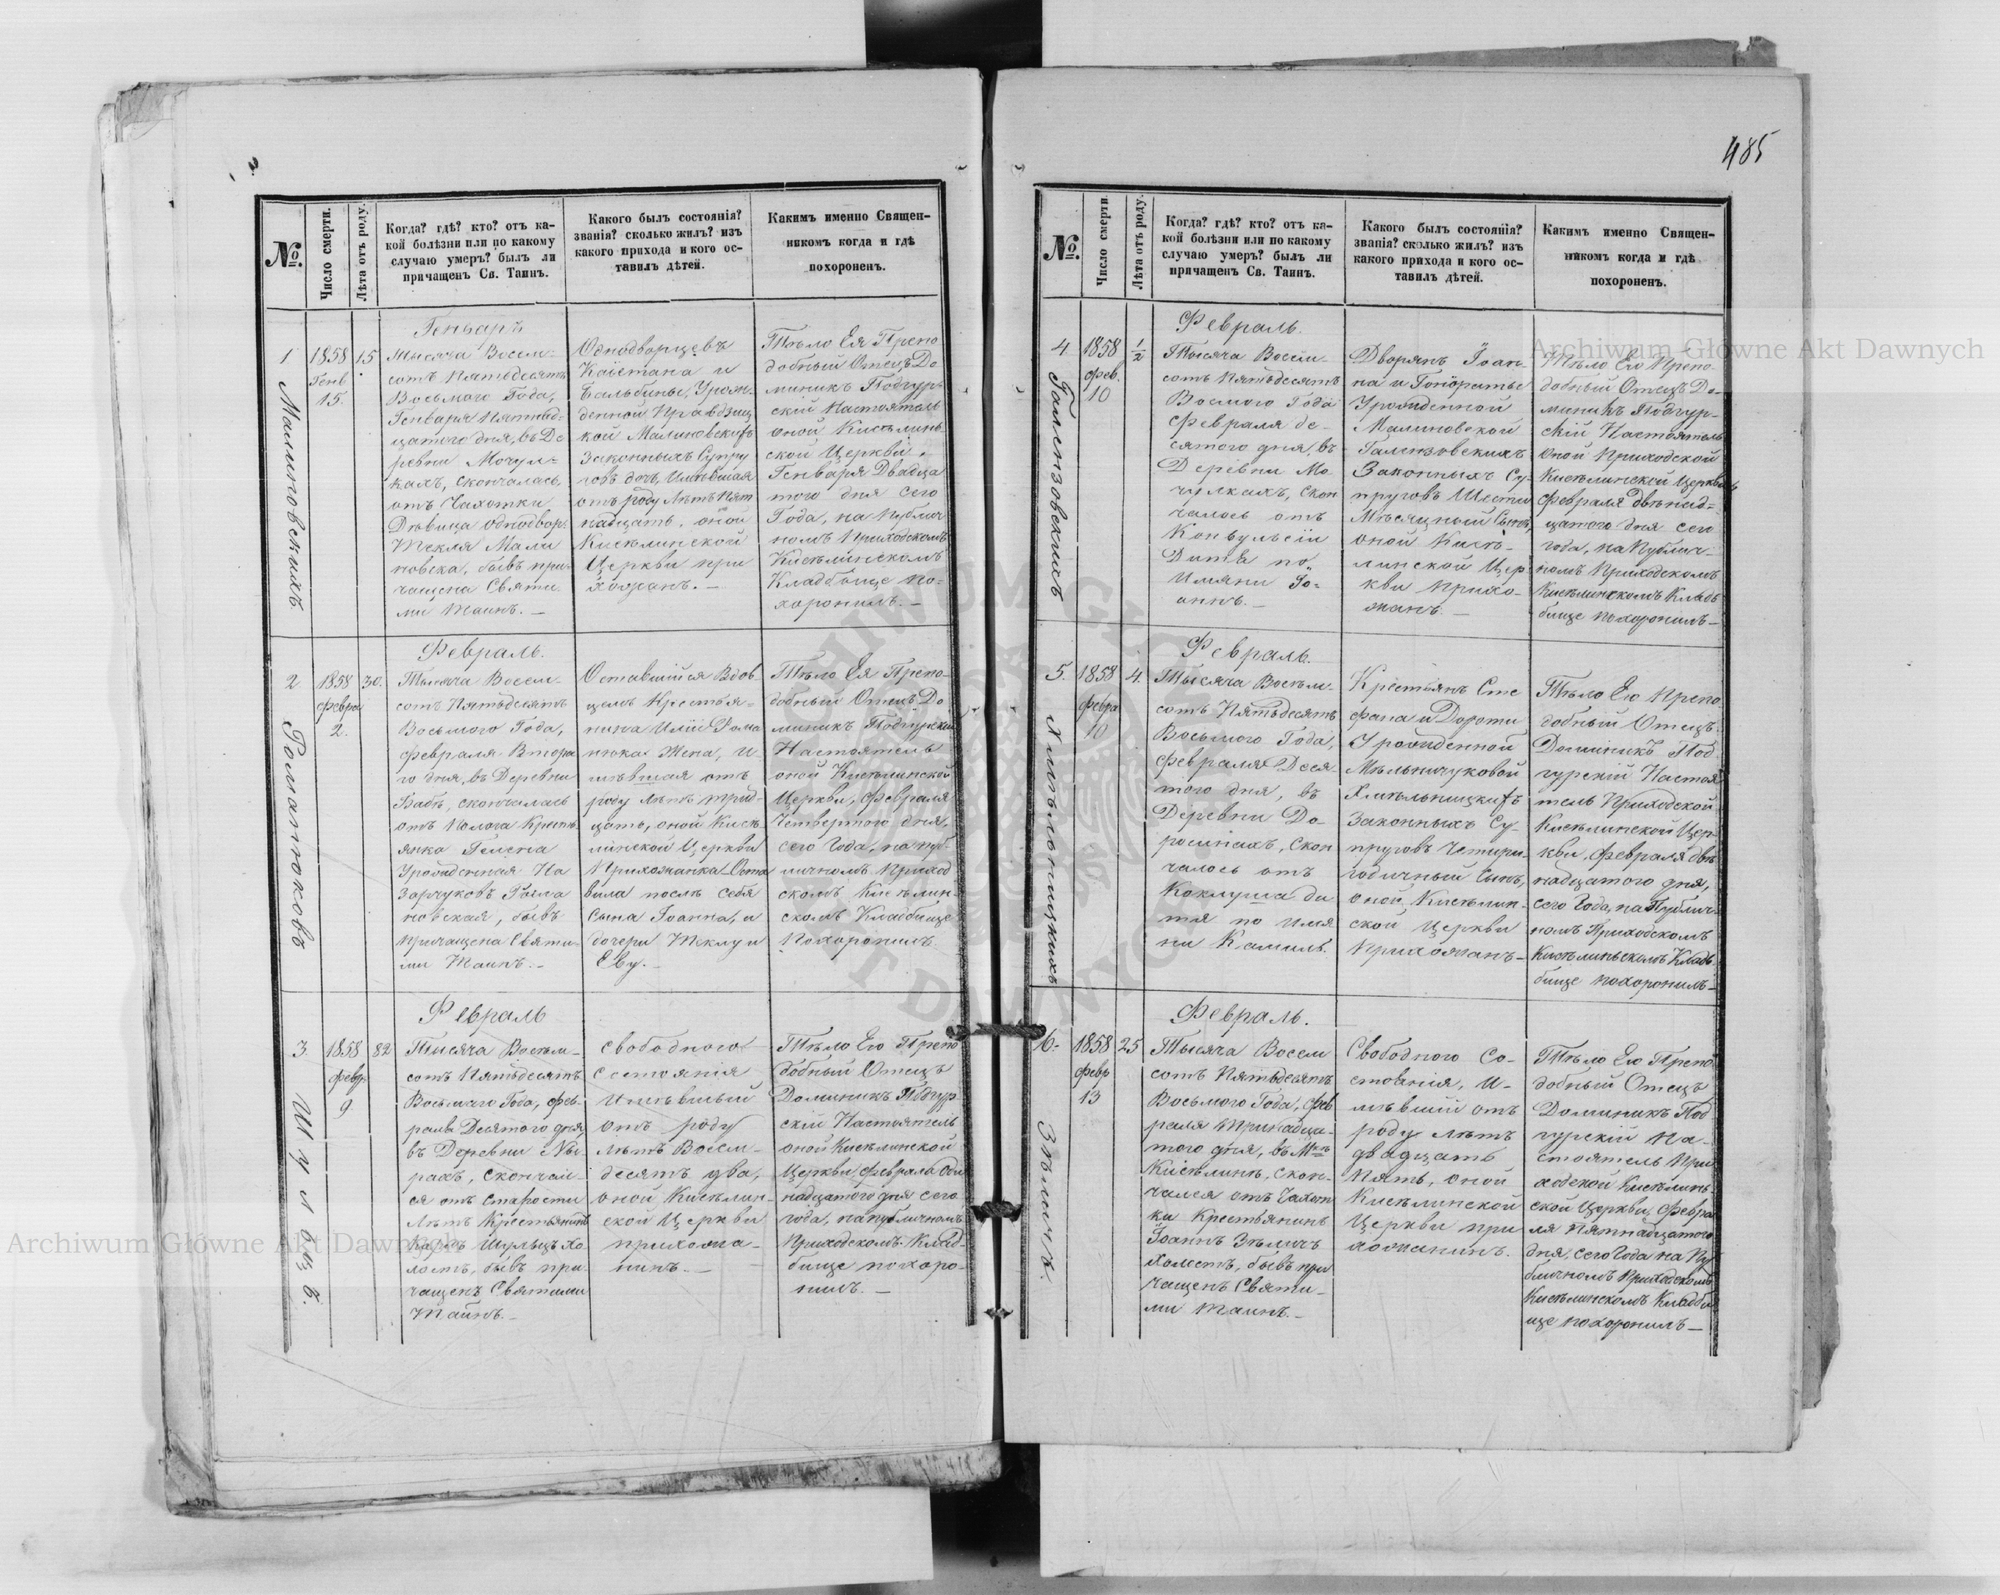 485
№.
Число смерти.
Лѣта отъ роду.
Когда? гдѣ? кто? отъ ка-
кой болѣзни или по какому
случаю умеръ? былъ ли
причащенъ Св. Таинъ.
Какого былъ состоянія?
званія? сколько жилъ? изъ
какого прихода и кого ос-
тавилъ дѣтей.
Какимъ именно Священ-
никомъ когда и гдѣ
похороненъ.
1
Малиновскихъ
1858
Генв
15.
15
Генварь
Тысяча Восем-
сотъ Пятьдесятъ
Восьмого Года,
Генваря Пятнад-
цатого дня, въ Де
ревни Мочул-
кахъ, скончалась
отъ Чахотки
Дѣвица однодвор.
Текля Мали
новска, бывъ при-
чащена Святи-
ми Таинъ. —
Однодворцевъ
Каетана и
Бальбины, Урож-
денной Правдзиц
кой Малиновскихъ
Законныхъ Супру
говъ дочь, Имѣвшая
отъ роду лѣтъ пят
надцать, оной
Кисѣлинской
Церкви при
хожанъ. —
Тѣло Ея Препо
добный Отецъ До
миникъ Подгур-
скій Настоятель
оной Кисѣлинь
ской Церкви,
Генваря Двадца
того дня сего
Года, на публич
номъ Приходскомъ
Кисѣлинскомъ
Кладбище по-
хоронилъ. —
2
Романюковъ
1858
февра
2.
30.
Февраль.
Тысяча Восем-
сотъ Пятьдесятъ
Восьмого Года,
февраля Втора
го дня, въ Деревни
скончалась
отъ Полога Кресть
янка Гелена
Урожденная На
зарчуковъ Рома
новская, бывъ
причащена Святи-
ми Таинъ. —
Оставшійся Вдов
цемъ Крестья-
нина Иліи Рома
нюка Жена, и-
мѣвшая отъ
роду лѣтъ трид-
цать, оной Кисѣ
линской Церкви
Прихожанка Оста
вила послѣ себя
Сына Іоанна, и
дочери Теклу и
Еву. —
Тѣло Ея Препо-
добный Отецъ До
миникъ Подгурскій
Настоятель
оной Кисѣлинской
Церкви, февраля
Четвертого дня,
сего Года, на пуб-
личномъ Приход
скомъ Кисѣлин-
скомъ Кладбище
Похоронилъ.
3.
Шульцъ.
1858
февр
9
82
Февраль
Тысяча Восѣм-
сотъ Пятьдесятъ
Восьмаго Года, фев-
раля Десятого дня,
въ Деревни
рахъ, скончал-
ся отъ старости
лѣтъ Крестьянинъ
Карлъ Шульцъ Хо
лостъ, бывъ при-
чащенъ Святыми
Таинъ. —
Свободного
состоянія
имѣвшій
отъ роду
лѣтъ Восем-
десятъ два,
оной Кисѣлин-
ской Церкви
прихожа-
нинъ. —
Тѣло Его Препо
добный Отецъ
Доминикъ Подгур
скій Настоятель
оной Кисѣлинской
Церкви, февраля Оди
надцатого дня сего
года, на публичномъ
Приходскомъ Клад-
бище похоро-
нилъ. —
№.
Число смерти.
Лѣта отъ роду.
Когда? гдѣ? кто? отъ ка-
кой болѣзни или по какому
случаю умеръ? былъ ли
причащенъ Св. Таинъ.
Какого былъ состоянія?
званія? сколько жилъ? изъ
какого прихода и кого ос-
тавилъ дѣтей.
Какимъ именно Священ-
никомъ когда и гдѣ
похороненъ.
4
Галензовскихъ
1858
фев.
10
1/2
Февраль.
Тысяча Восем-
сотъ Пятьдесятъ
Восмого Года
Февраля де-
сятого дня, въ
Деревни Мо-
чулкахъ, скон
чалось отъ
Конвульсіи
Дитя по
Имяни Іо-
аннъ. —
Дворянъ Іоан-
на и Гонораты
Урожденной
Малиновской
Галензовскихъ
Законныхъ Су-
пруговъ Шести
Мѣсяцный Сынъ,
оной Кисѣ-
линской Цер-
кви прихо-
жанъ. —
Тѣло Его Препо-
добный Отецъ До-
миникъ Подгур-
скій Настоятель
Оной Приходской
Кисѣлинской Церкви
февраля двѣнад-
цатого дня сего
года, на Публич-
номъ Приходскомъ
Кисѣлинскомъ Кладь
бище похоронилъ —
5.
Хмѣльницкихъ
1858
февра
10
4.
Февраль.
Тысяча Восѣм-
сотъ Пятьдесятъ
Восьмого Года,
февраля Деся
того дня, въ
Деревни До-
росинахъ, скон
чалось отъ
Коклуша ди
тя по имя
ни Камиль.
Крестьянъ Сте
фана и Дороти
Урожденной
Мѣльничуковой
Хмѣльницкихъ
Законныхъ Су-
пруговъ Четири-
годичный Сынъ,
оной Кисѣлин-
ской Церкви
Прихожанъ —
Тѣло Его Препо
добный Отецъ
Доминикъ Под
гурскій Настоя
тель Приходской
Кисѣлинской Цер
кви, февраля двѣ
надцатого дня,
сего Года, на Публич-
номъ Приходскомъ
Кисѣлиньскомъ Кладь
бище похоронилъ —
6.
Зѣличъ.
1858
февр
13
25
Февраль.
Тысяча Восем
сотъ Пятьдесятъ
Восьмого Года, фев
раля Тринадца-
того дня, въ М
Кисѣлинѣ, скон-
чался отъ Чахот
ки Крестьянинъ
Іоаннъ Зѣличъ
Холостъ, бывъ при
чащенъ Святи-
ми Таинъ. —
Свободного Со-
стоянія, И-
мѣвшій отъ
роду лѣтъ
двадцать
Пять, оной
Кисѣлинской
Церкви при
хожанинъ.
Тѣло Его Препо
добный Отецъ
Доминикъ Под
гурскій На-
стоятель При
ходской Кисѣлинь-
ской Церкви, Февра
ля Пятнадцатого
дня, сего Года на Пу
бличномъ Приходскомъ
Кисѣлинскомъ Кладби
ще похоронилъ —
Archiwum Główne Akt Dawnych
Archiwum Główne Akt Dawnych